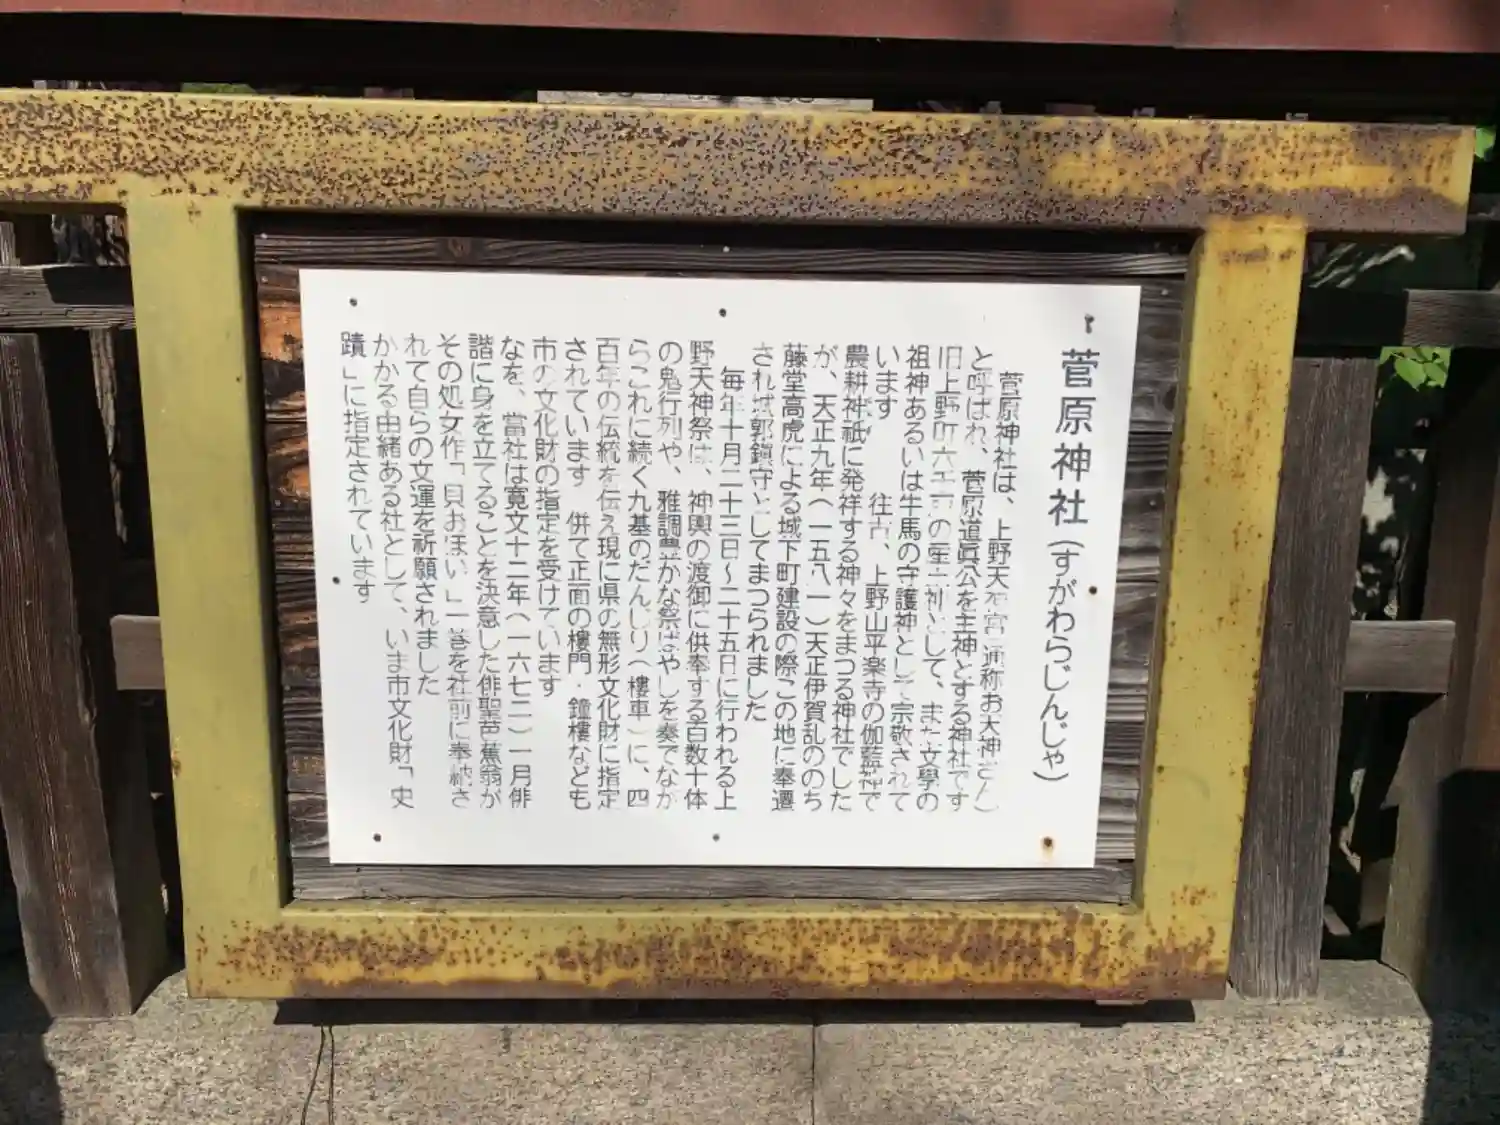 菅原神社（すがわらじんじゃ）
菅原神社は、上野天神宮通称お天神さん
と呼ばれ、菅原道眞公を主神とする神社です
旧上野町六の産土神として、また文學の
祖神あるいは牛馬の守護神として宗敬されて
います　　往古、上野山平楽寺の伽藍神で
農耕神祇に発祥する神々をまつる神社でした
が、天正九年（一五八一）天正伊賀乱ののち
藤堂高虎による城下町建設の際この地に奉遷
され城郭鎮守としてまつられました
毎年十月二十三日～二十五日に行われる上
野天神祭は、神輿の渡御に供奉する百数十体
の鬼行列や、雅調豊かな祭ばやしを奏でなが
らこれに続く九基のだんじり（樓車）に、四
百年の伝統を伝え現に県の無形文化財に指定
されています　併て正面の樓門・鐘樓なども
市の文化財の指定を受けています
なを、當社は寛文十二年（一六七二）一月俳
諧に身を立てることを決意した俳聖芭蕉翁が
その処女作「貝おほい」一巻を社前に奉納さ
れて自らの文運を祈願されました
かかる由緒ある社として、いま市文化財「史
蹟」に指定されています